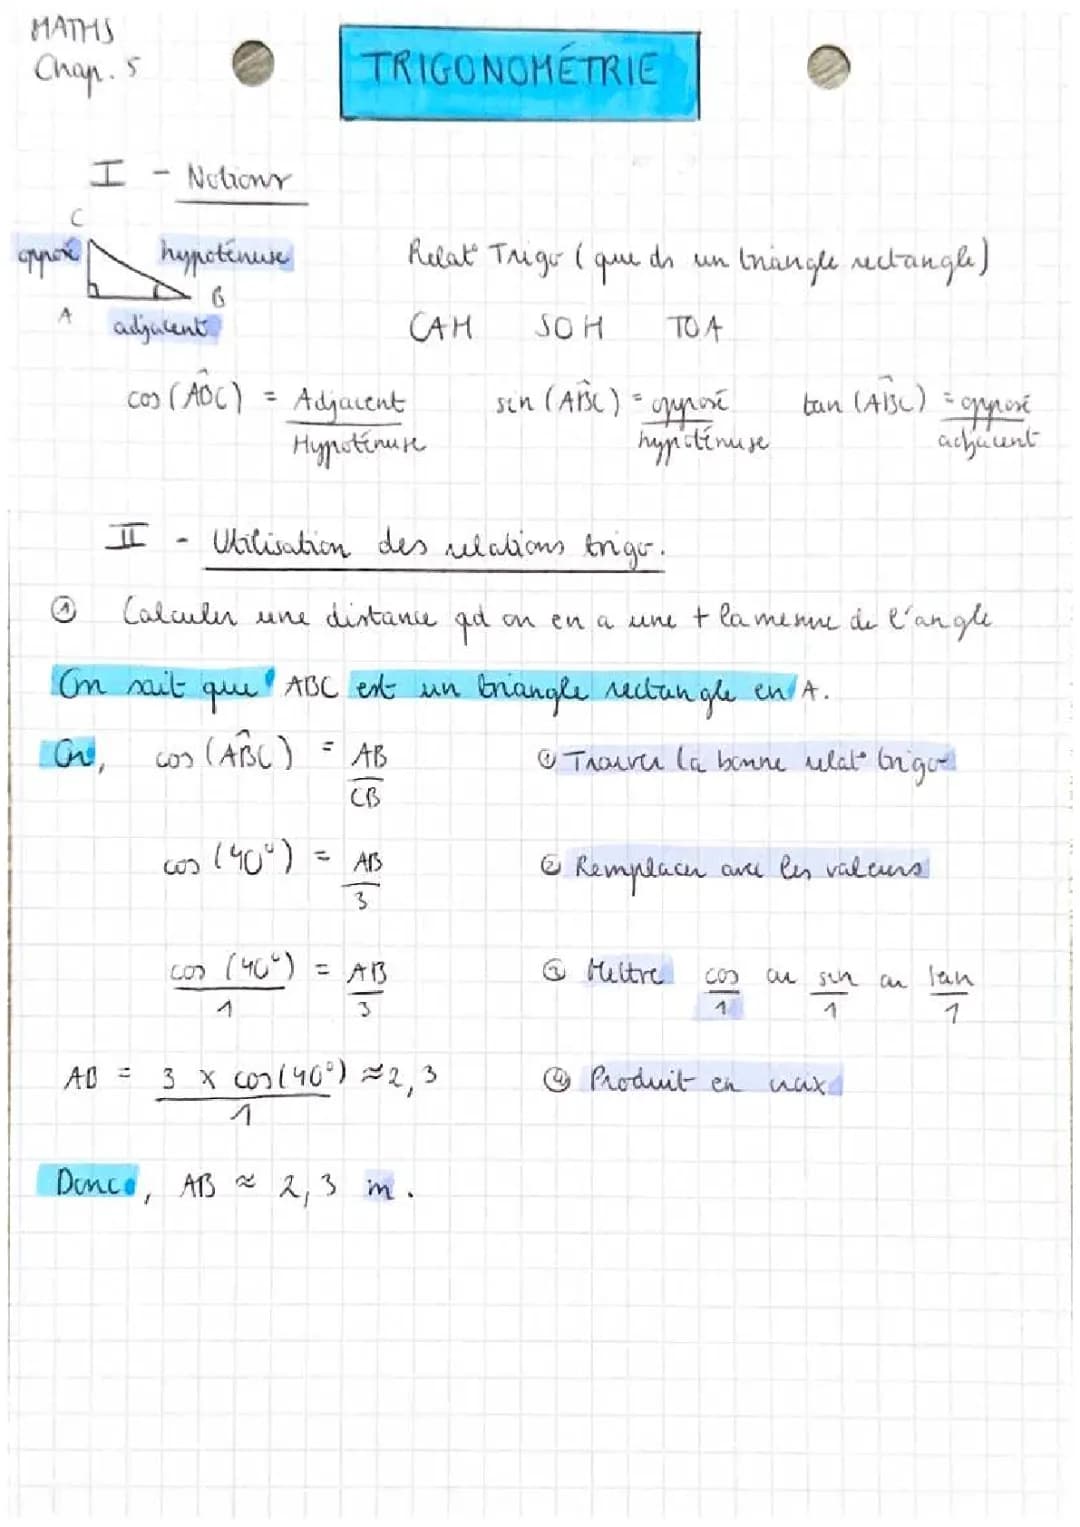 MATHS
Chap. 5
TRIGONOMÉTRIE
I - Notions
C
opposé hypoténuse
A B
adjacent
Relat° Trigo (que ds un triangle rectangle)
CAH SOH TOA
cos (ABC) = Adjacent / Hypoténuse
sin (ABC) = opposé / hypoténuse
tan (ABC) = opposé / adjacent
II - Utilisation des relations trigo.
① Calculer une distance qd on en a une + la mesure de l'angle
On sait que ABC est un triangle rectangle en A.
Or, cos (ABC) = AB / CB
① Trouver la bonne relat° trigo
cos (40°) = AB / 3
② Remplacer avec les valeurs
cos (40°) / 1 = AB / 3
③ Mettre cos / 1 ou sin / 1 ou tan / 1
AB = 3 x cos(40°) / 1 ≈ 2,3
④ Produit en croix
Donc, AB ≈ 2,3 m.